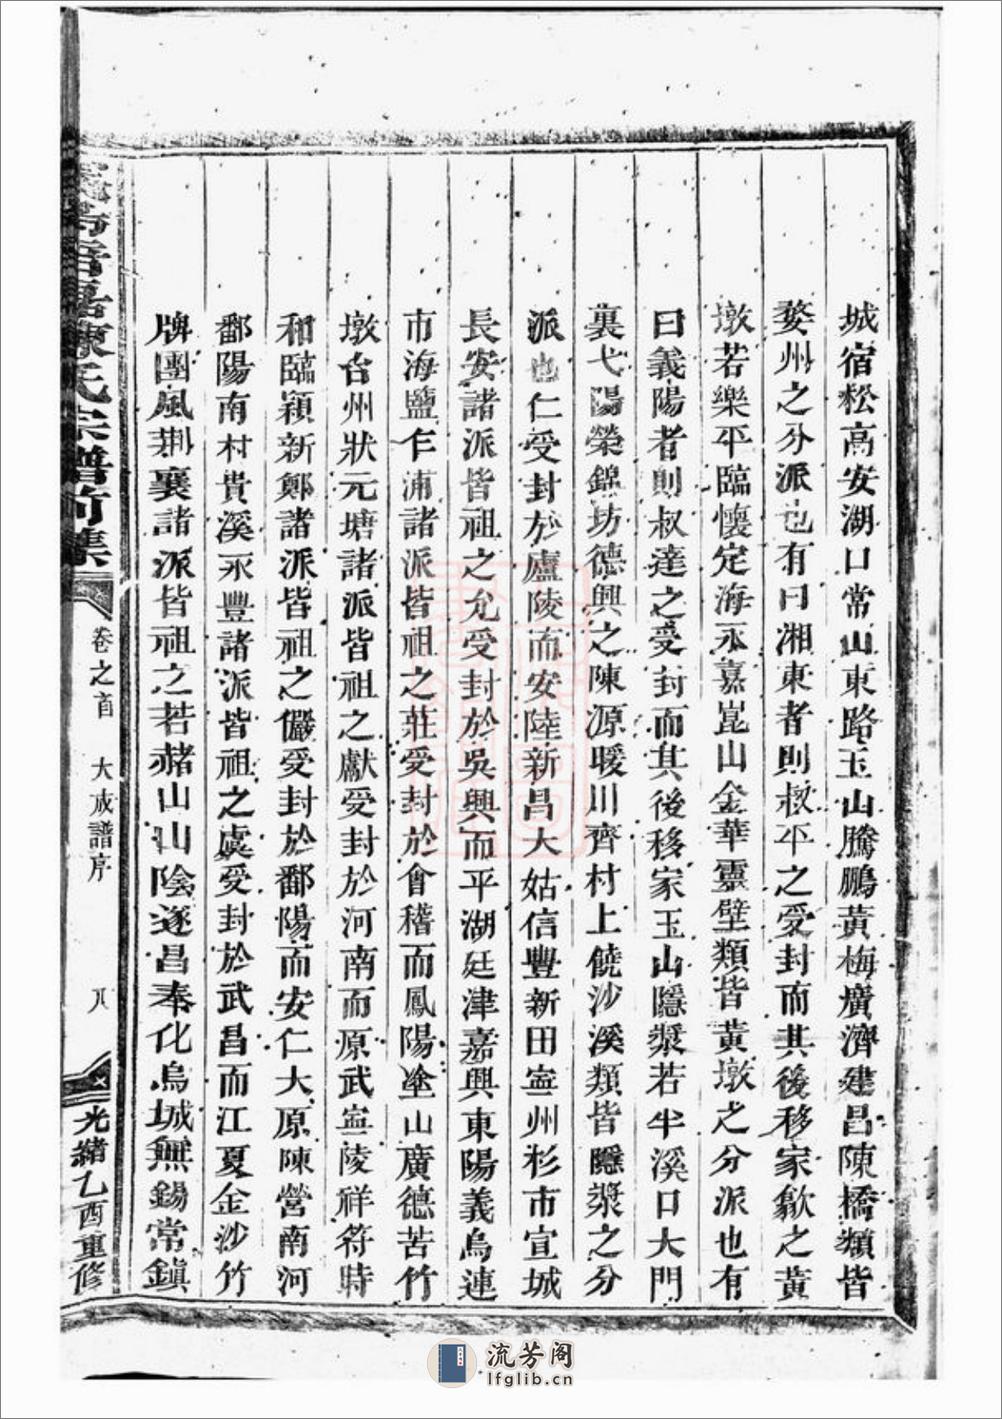 城宿松高安湖口常山東路玉山騰鵬黃梅廣濟建昌陳橋類皆
婺州之分派也有曰湘東者則叔平之受封而其後移家歙之黃
墩若樂平臨懷定海永嘉崑山金華靈壁類皆黃墩之分派也有
曰義陽者則叔達之受封而其後移家玉山隱漿若半溪口大門
裏弋陽榮錦坊德興之陳源暖川齊村上饒沙溪類皆隱漿之分
派也仁受封於廬陵而安陸新昌大姑信豐新田寍州杉市宣城
長安諸派皆祖之允受封於吳興而平湖廷津嘉興東陽義烏連
市海鹽乍浦諸派皆祖之莊受封於會稽而鳳陽塗山廣德苦竹
墩台州狀元塘諸派皆祖之獻受封於河南而原武寍陵祥符時
和臨潁新鄭諸派皆祖之儼受封於鄱陽而安仁大原陳營南河
鄱陽南村貴溪永豐諸派皆祖之處受封於武昌而江夏金沙竹
牌團風荆襄諸派皆祖之若赭山山陰遂昌奉化烏城無錫常鎮
居陳氏宗譜前集
卷之首 大成譜序 八
光緒乙酉重修
流芳阁
lfglib.cn